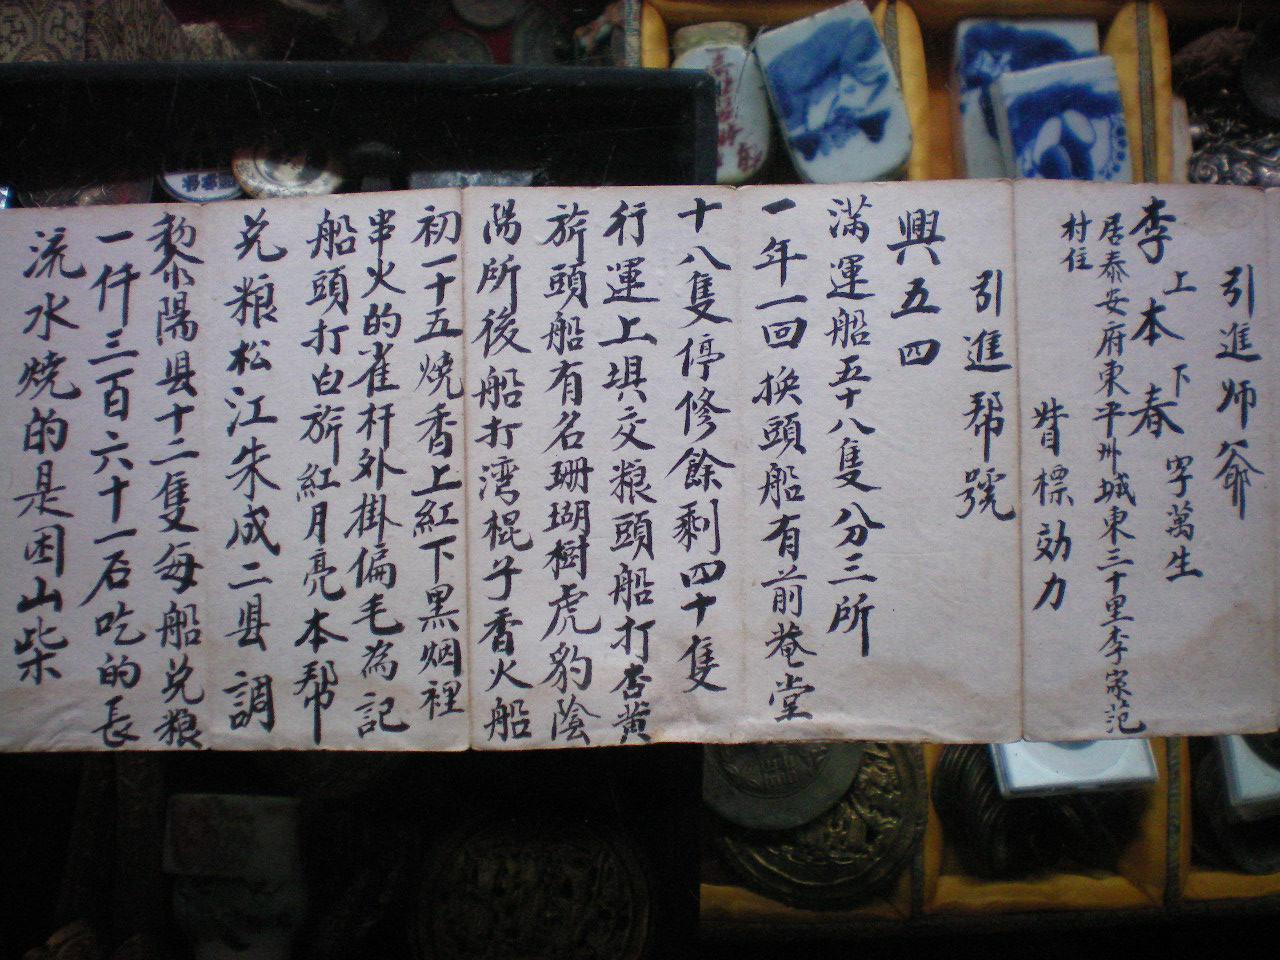 引進师爺
李 上 本 下 春 字萬生
居泰安府東平州城東三十里李家范
村住
贊標効力
引進帮號
興五四
滿運船五十八隻分三所
一年一回换頭船有前菴堂
十八隻停修餘剩四十隻
行運上垻交粮頭船打杏黄
旂頭船有名珊瑚樹虎豹蔭
陽所後船打湾棍子香火船
初一十五燒香上紅下黑烟裡
串火的雀杆外掛偏毛為記
船頭打白旂紅月亮本帮
兑粮松江朱成二县調
陽县十二隻每船兑粮
一仟三百六十一石吃的長
流水燒的是困山柴